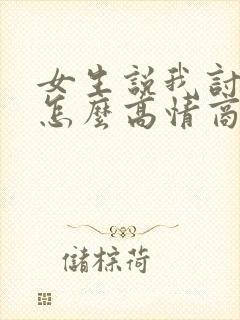 女生說我討
怎麼高情商
儲棕荷